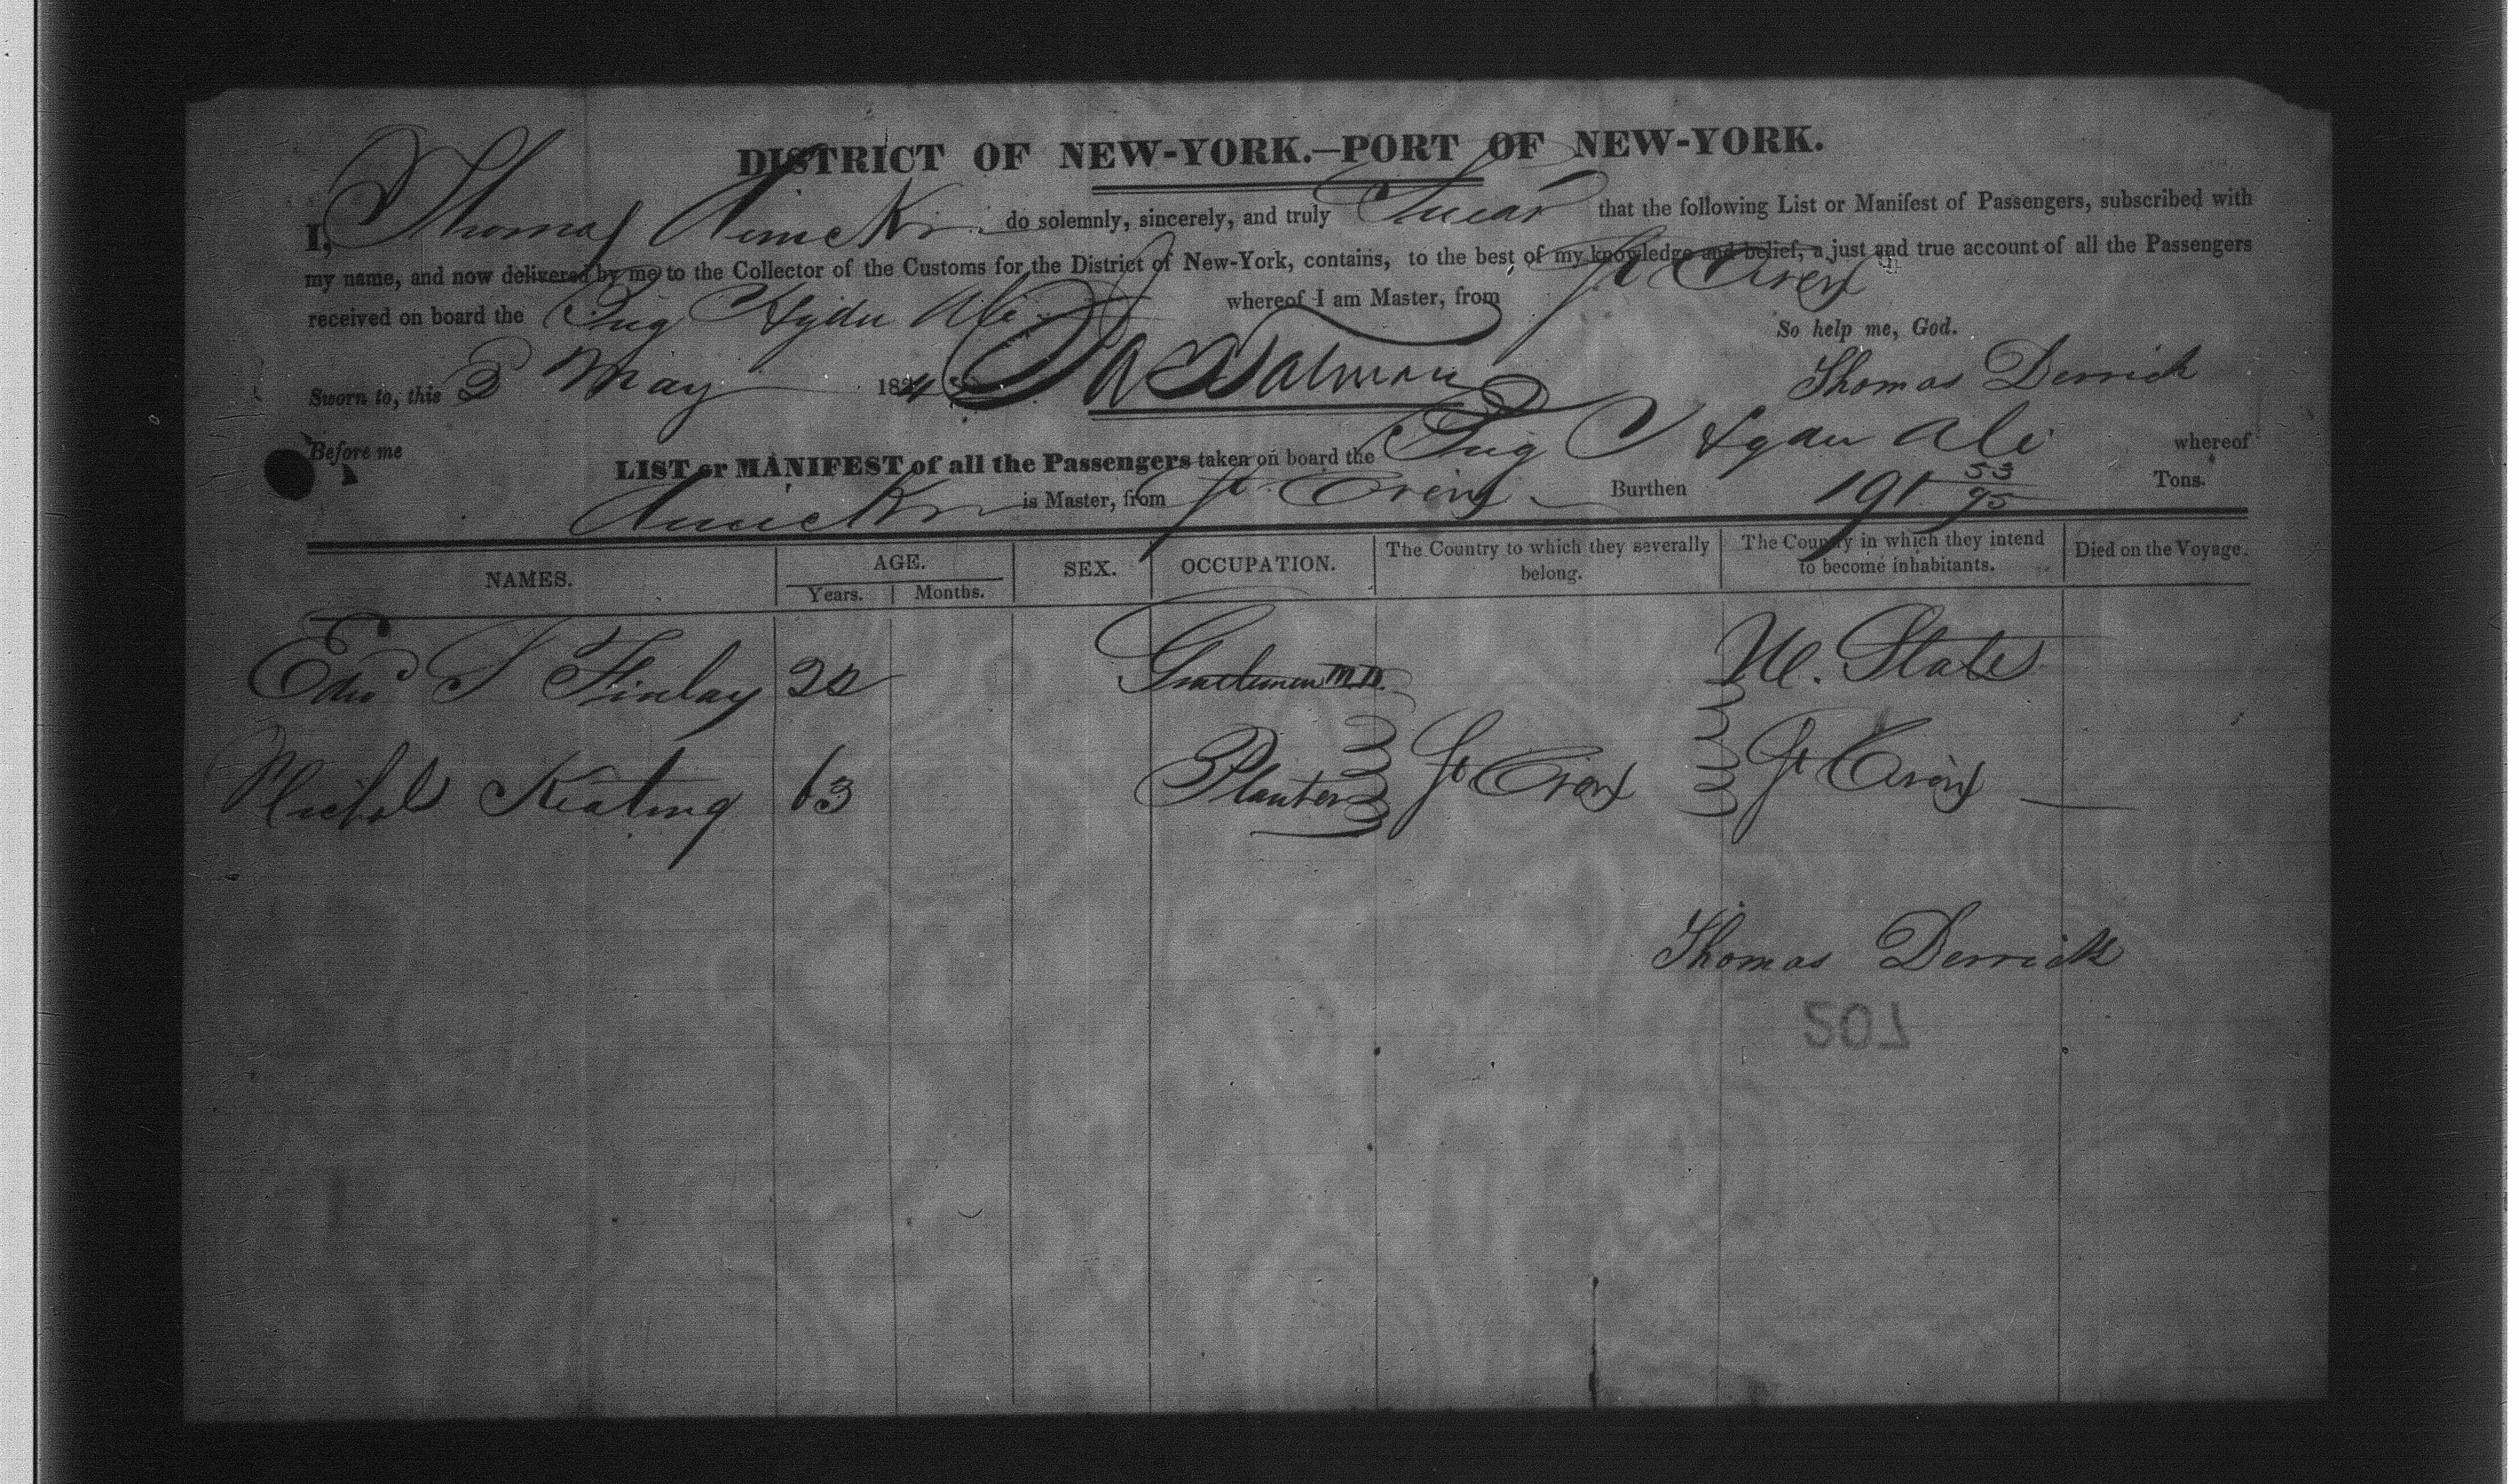 DISTRICT OF NEW-YORK.—PORT OF NEW-YORK.
I, Thomas do solemnly, sincerely, and truly Swear that the following List or Manifest of Passengers, subscribed with
my name, and now delivered by me to the Collector of the Customs for the District of New-York, contains, to the best of my knowledge and belief, a just and true account of all the Passengers
received on board the Brig Hyder Ali whereof I am Master, from St Croix
So help me, God.
Sworn to, this 3 May 184 Thomas Derrick
Before me
LIST or MANIFEST of all the Passengers taken on board the Brig Hyder Ali whereof
is Master, from St Croix Burthen 191 53/95 Tons.
NAMES. AGE. SEX. OCCUPATION. The Country to which they severally belong. The Country in which they intend to become inhabitants. Died on the Voyage.
Years. Months.
Edwd T Finlay 22 Gentleman U. States
Michel Keating 63 Planter St Croix St Croix —
Thomas Derrick
207